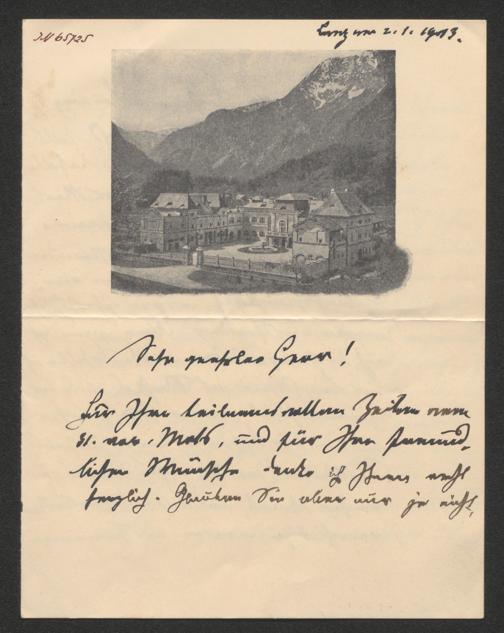 IN 65725
Lunz am 2. I. 1913.
Sehr geehrter Herr!
Für Ihre teilnamsvollen Zeilen vom
31. vor. Mts, und für Ihre freund-
lichen Wünsche danke ich Ihnen recht
herzlich. Glauben Sie aber nur ja nicht,